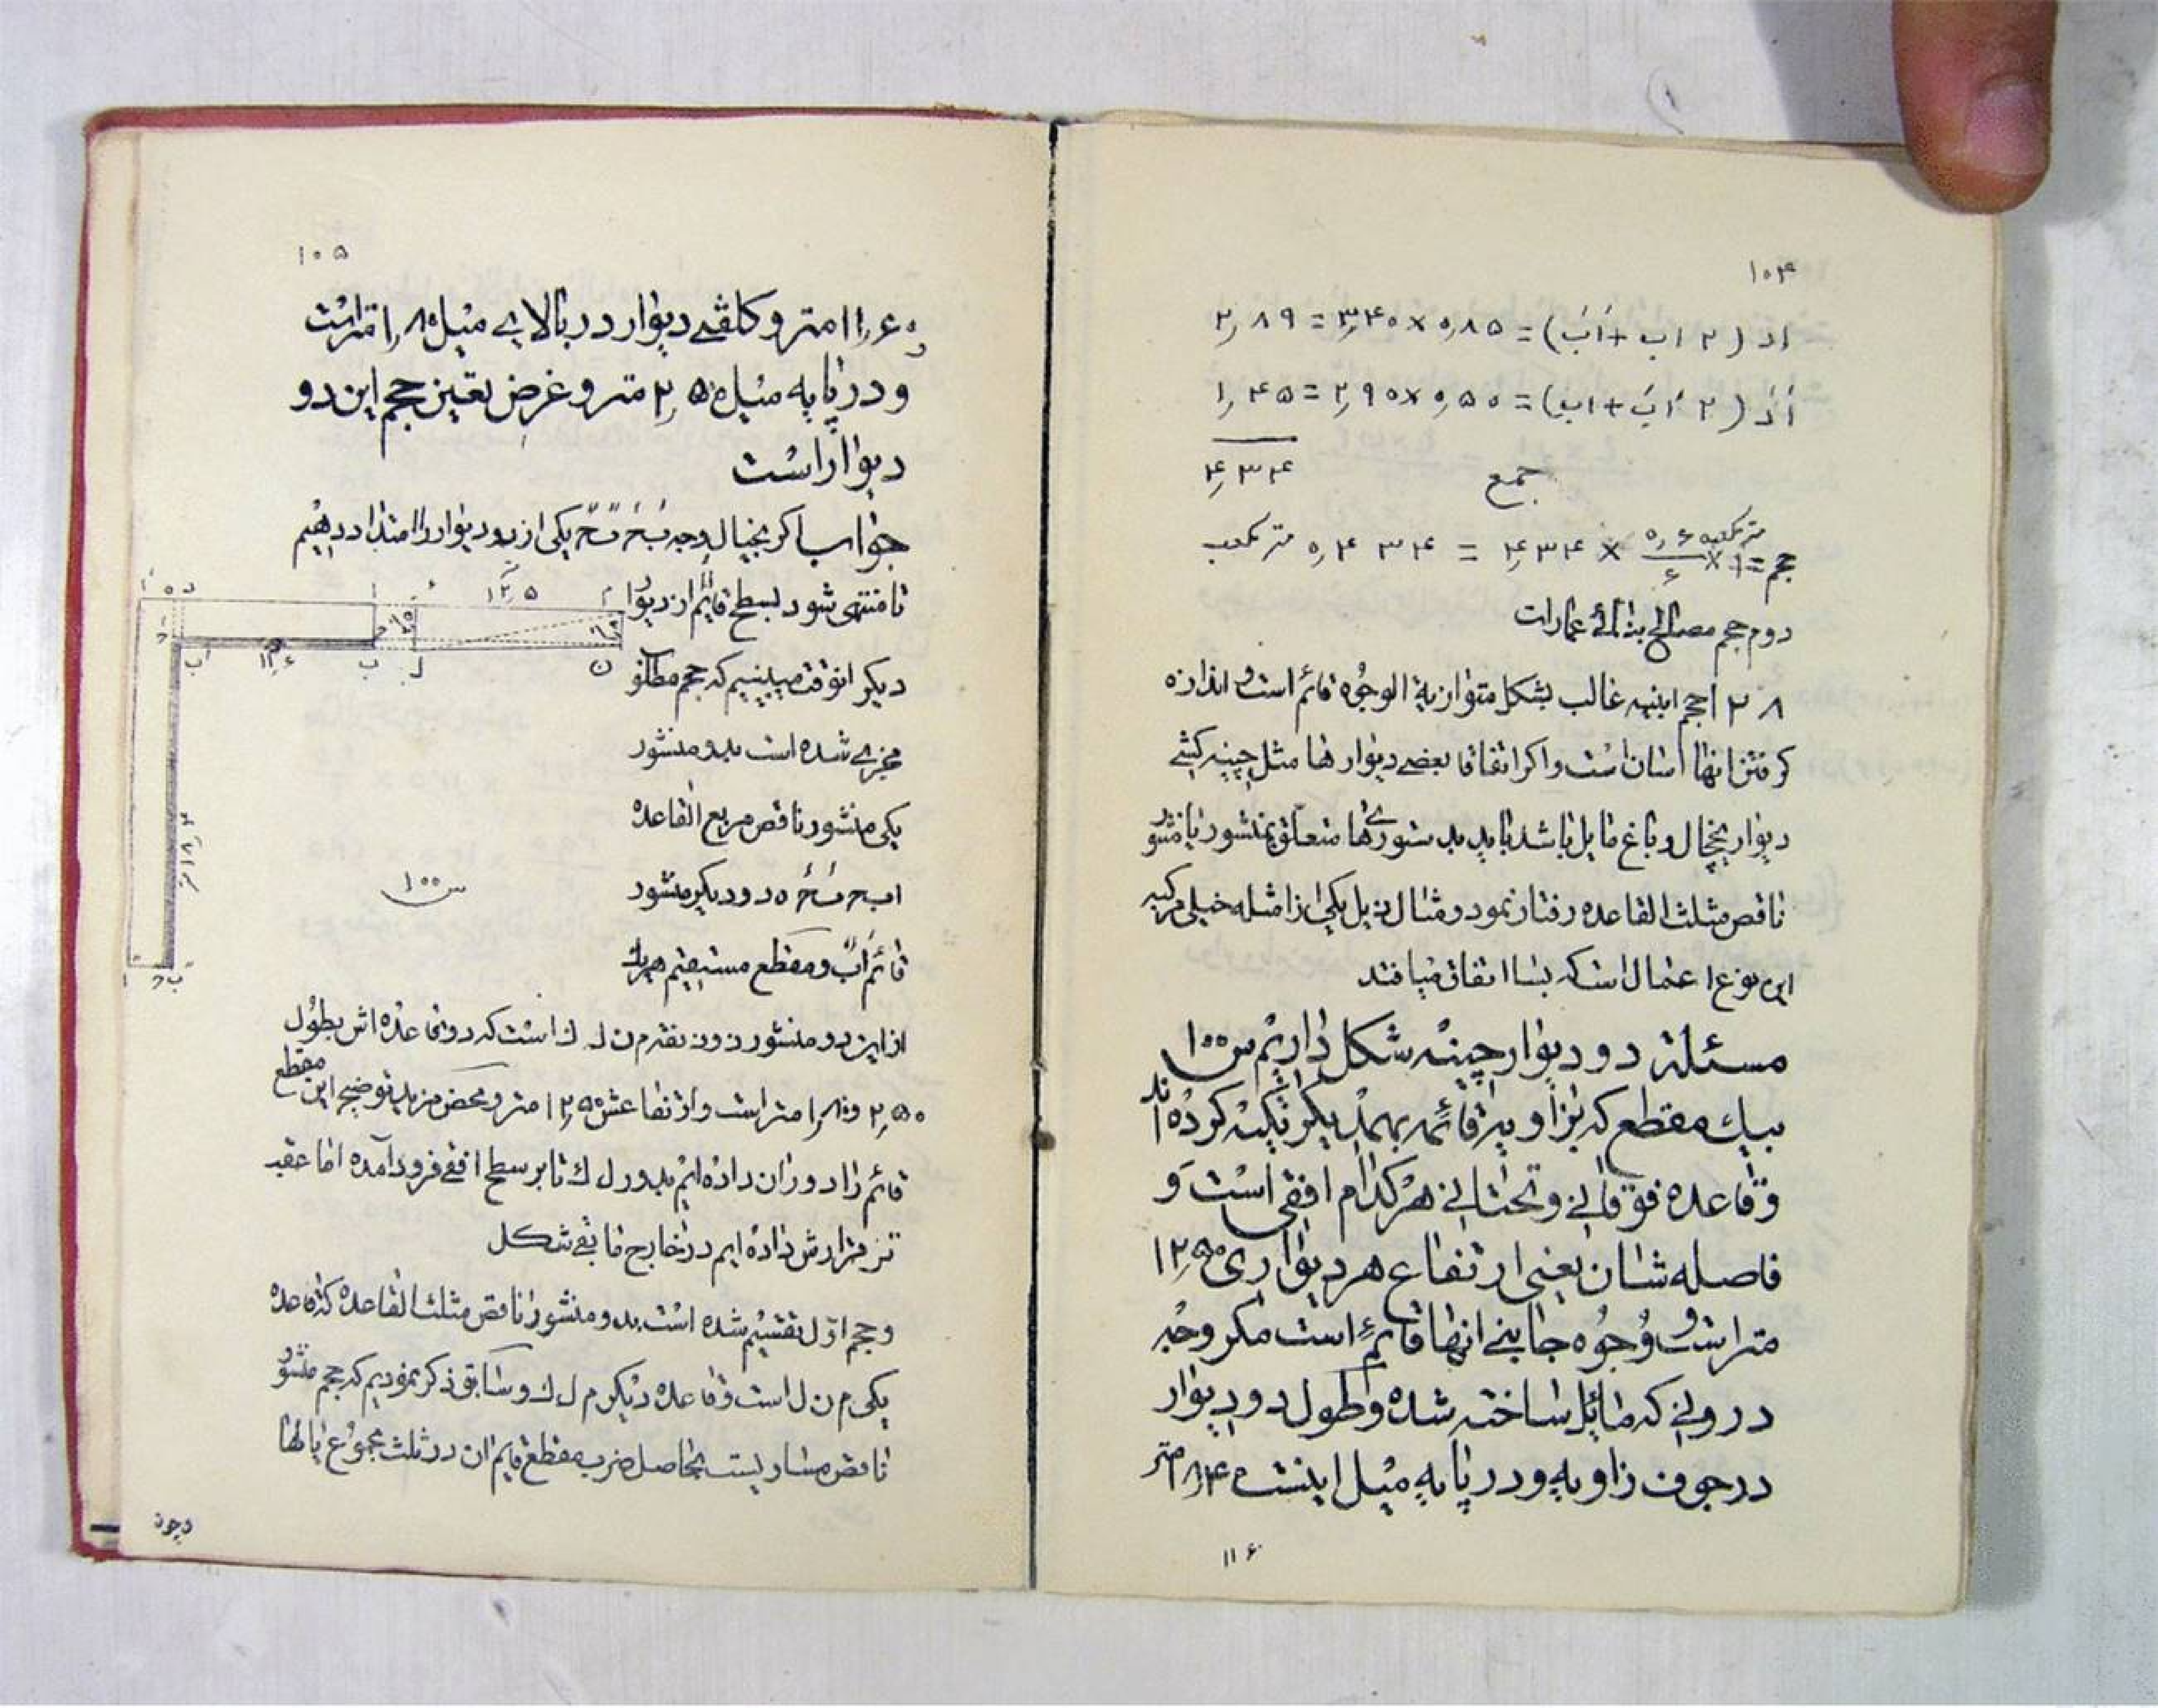 ۱۰۴
اد (۲ اب + اَبَ) = ۰٫۸۵ × ۳٫۴۰ = ۲٫۸۹
اَدَ (۲ اَبَ + اب) = ۰٫۵۰ × ۲٫۹۰ = ۱٫۴۵
جمع ۴٫۳۴
حجم = ۱ × ۰٫۶ متر مکعبه / ۶ × ۴٫۳۴ = ۰٫۴۳۴ متر مکعب
دوم حجم مصالح بنائے عمارات
۲۸ احجم ابنیه غالب بشکل متوازیة الوجُوه قائم است و اندازه
کرفتن انها اسان است و اکر اتفاقا بعضے دیوارها مثل چینه کشے
دیوار یخچال و باغ مایل باشد باید بدستورے ها متعلّق بمنشور یا منشور
ناقص مثلث القاعده رفتار نمود و مثال ذیل یکی از امثله خیلی مرکبه
این نوع اعمال است که بسا اتفاق میافتد
مسئلة دو دیوار چینه شکل داریم س ۱۰۰
بیک مقطع که بزاویه قائمه بهمدیکر تکیه کرده اند
و قاعده فوقانے و تحتانے هر کدام افقی است و
فاصله شان یعنی ارتفاع هر دیواری ۱۲٫۵۰
متر است و وُجُوه جانبے انها قائم است مکر وجه
درونے که مائل ساخته شده و طول دو دیوار
در جوف زاویه و در پایه میل اینست ۱۸٫۴۰ متر
۱۱۶
۱۰۵
و ۱۱٫۶۰ متر و کلفتے دیوار در بالای میل ۱٫۸۰ متر است
و در پایه میل ۲٫۵۰ متر و غرض تعیین حجم این دو
دیوار است
جواب اکر بخیال وجه بَ حَ بً حً یکی از دو دیوار را امتداد دهیم
تا منتهی شود بسطح قایم از دیوار
دیکر انوقت میبینیم که حجم مطلوب
مجزے شده است بدو منشور
یکی منشور ناقص مربع القاعده
اب ح دَ اَ حَ ه د و دیکر منشور
قائم اَبً و مقطع مستقیم هریک
از این دو منشور ذوذنقه م ن ل ک است که دو قاعده اش بطول
۲٫۵۰ و ۱٫۸۰ متر است و ارتفاعش ۱۲٫۵۰ متر و محض مزید توضیح این مقطع
قائم را دوران داده ایم بدور ل ک تا بر سطح افقے فرود آمده اما عقب
تر قرارش داده ایم در خارج مابقے شکل
و حجم اوّل تقسیم شده است بدو منشور ناقص مثلث القاعده که قاعده
یکی م ن ل است و قاعده دیکر م ل ک و سابق ذکر نمودیم که حجم منشور
ناقص مساویست بحاصل ضرب مقطع قایم ان در ثلث مجموع یالها
س ۱۰۰
۱۲٫۵
۱۱٫۶
وچون